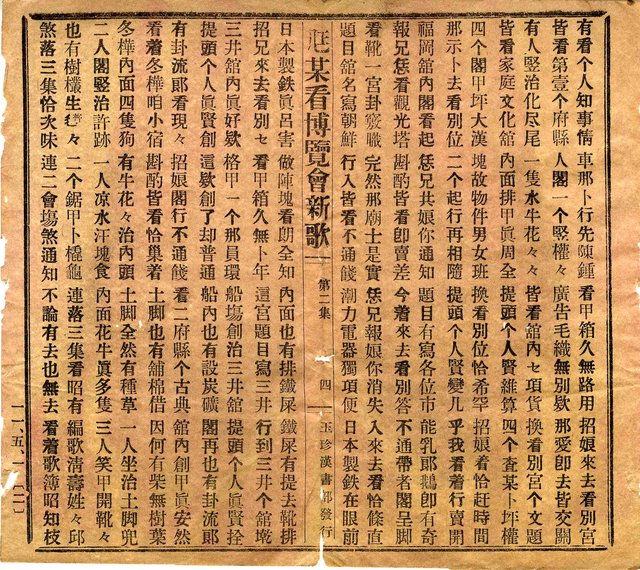 有看个人知事情 車那卜行先陳鍾 看甲箱久無路用 招娘來去看別宮
皆看第壹个府縣 人閣一个竪權々 廣告毛織無別欵 那愛卽去皆交關
有人竪治化尽尾 一隻水牛花々々 皆看舘內ㄝ項貨 換看別宮个文題
皆看家庭文化舘 內面排甲眞周全 提頭个人賢雜算 四个査某卜坪權
四个閣甲坪大漢 塊故物件男女班 換看別位恰希罕 招娘着恰赶時間
那示卜去看別位 二个起行再相隨 提頭个人賢變几 乎我看着行賣開
福岡舘內閣看起 恁兄共娘你通知 題目有寫各位市 能乳郞鵝卽有奇
報兄恁看觀光塔 斟酌皆看卽賣差 今着來去看別答 不通帶者閣呈脚
看靴一宮卦竅職 完然那廟士是實 恁兄報娘你消失 入來去看恰條直
題目舘名寫朝鮮 行入皆看不通餞 潮力電器獨項便 日本製鉄在眼前
尪某看博覽會新歌 第二集 四 玉珍漢書部發行
日本製鉄眞呂害 做陣塊看朗全知 內面也有排鐵屎 鐵屎有提去靴排
招兄來去看別ㄝ 看甲箱久無卜年 這宮題目寫三井 行到三井个舘墘
三井舘內眞好欵 格甲一个那員環 船塲創治三井舘 提頭个人眞賢拴
提頭个人眞賢創 這欵創了却普通 船內也有設炭礦 閣再也有卦流郞
有卦流郞看現々 招娘閣行不通餞 看二府縣个古典 舘內創甲眞安然
看着冬樺咱小宿 斟酌皆看恰集着 土脚也有舖棉借 因何有柴無樹葉
冬樺內面四隻狗 有牛花々治內頭 土脚全然有種草 一人坐治土脚兜
二人閣竪治許跡 一人凉水汗塊食 內面花牛眞多隻 三人笑甲開靴々
也有樹欉生 々 二个鋸甲卜橇龜 連落三集看昭有 編歌淸壽姓々邱
煞落三集恰次味 連二會塲煞通知 不論有去也無去 看着歌簿昭知枝